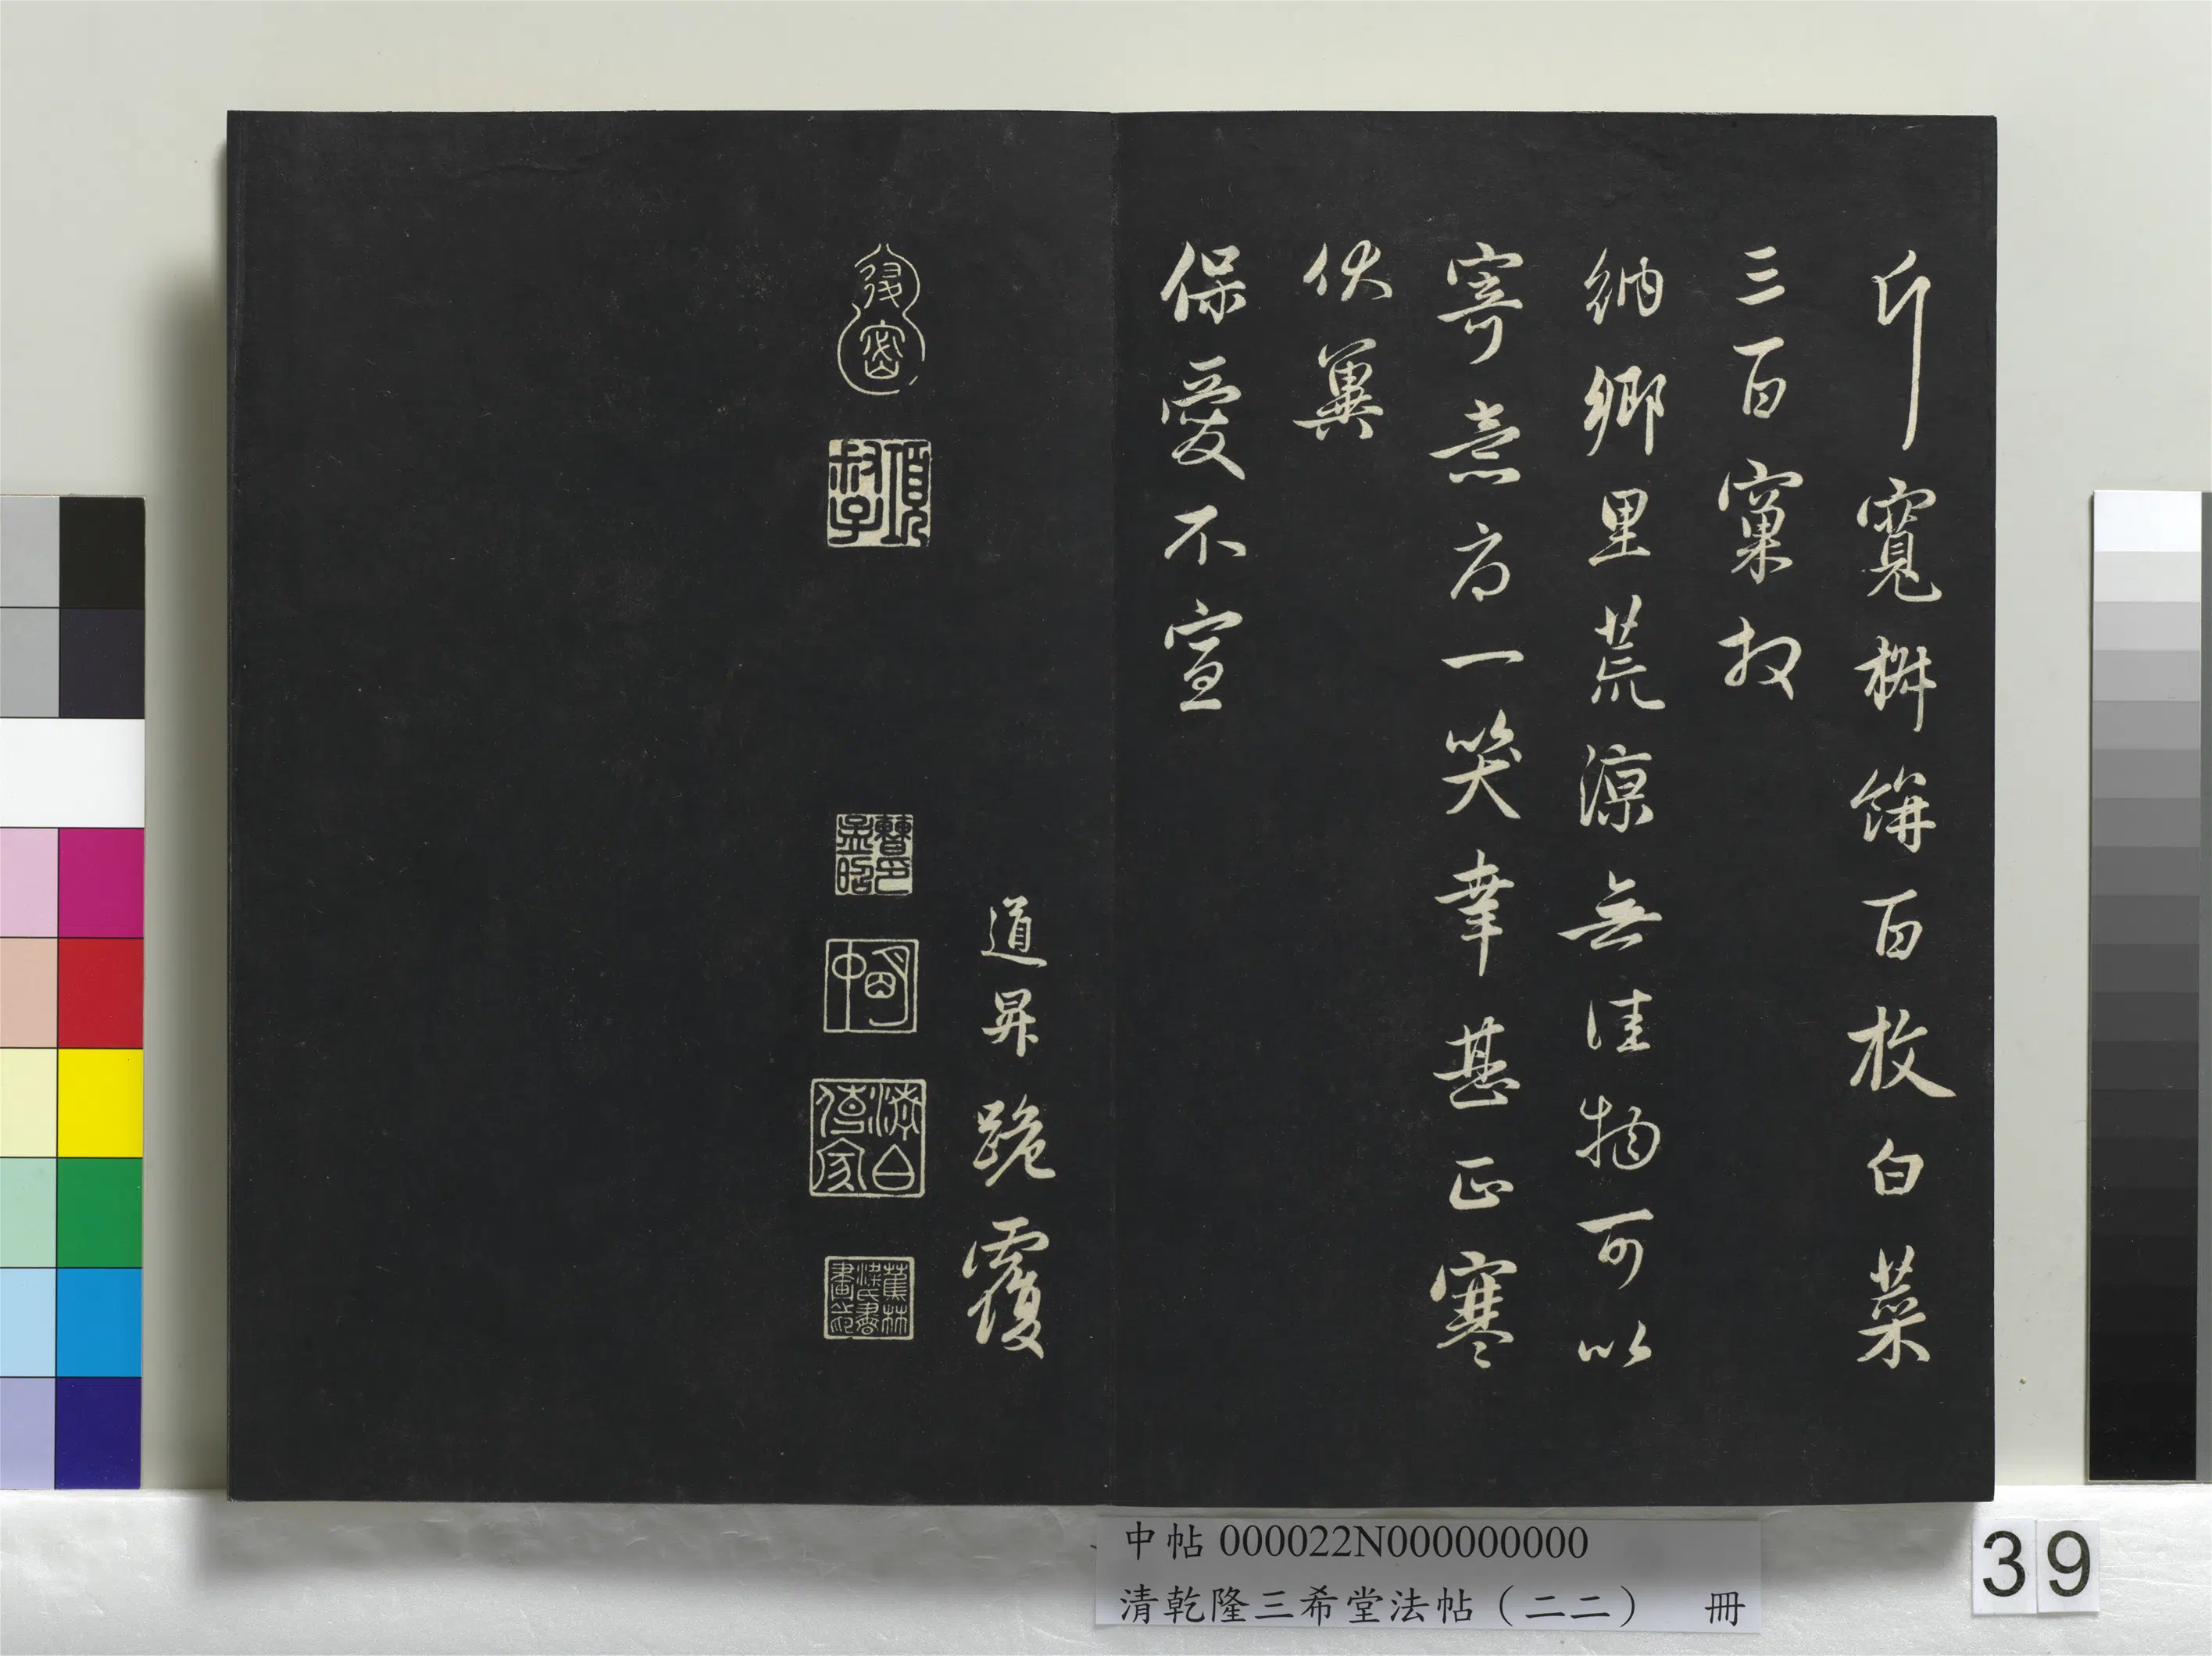 斤寬餅百枚白菜
三百窠收
納鄉里荒涼無佳物可以
寄意一笑幸甚正寒
伏冀
保愛不宣
道昇跪覆
項叔子
蕉林梁氏書畫之印
中帖 000022N000000000
清乾隆三希堂法帖（二二） 冊
39